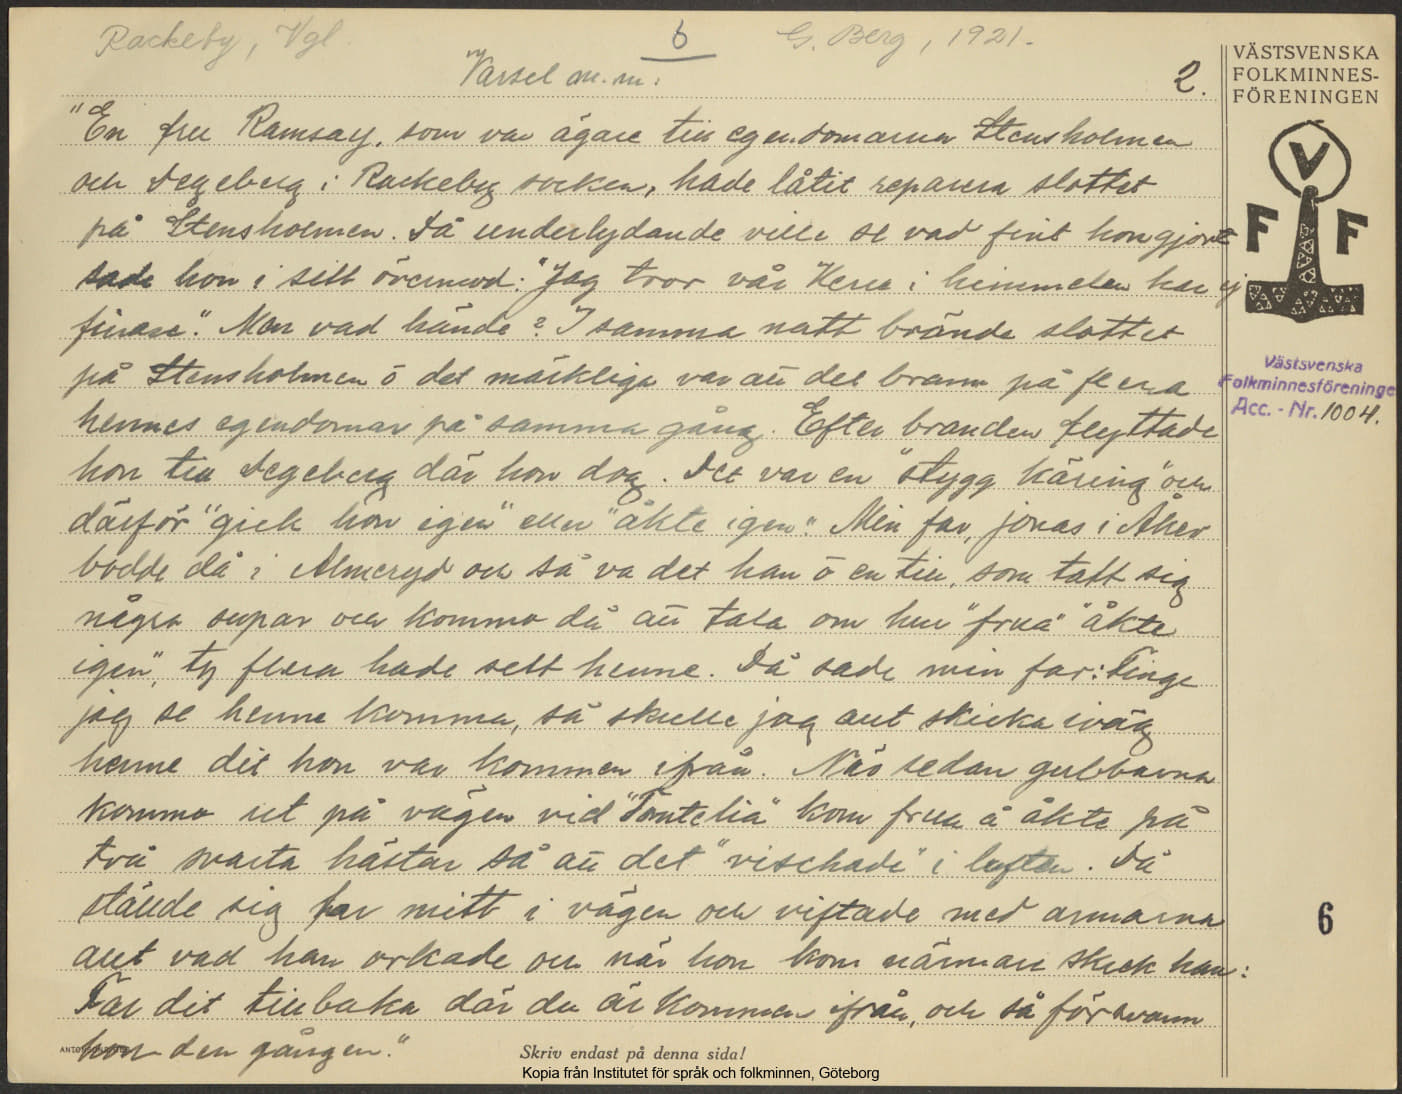 Rackeby, Vgl.
6
G. Berg, 1921.
Varsel m.m:
2.
"En fru Ramsay, som var ägare till egendomarna Stensholmen
och Degeberg i Rackeby socken, hade låtit reparera slottet
på Stensholmen. Då underlydande ville se vad fint hon gjort
sade hon i sitt övermod: "Jag tror vår Herre i himmelen har ej
finare". Men vad hände? I samma natt brände slottet
på Stensholmen ö det märkliga var att det brann på flera
hennes egendomar på samma gång. Efter branden flyttade
hon till Degeberg där hon dog. Det var en "stygg käring" och
därför "gick hon igen" eller "åkte igen". Min far, Jonas i Åker
bodde då i Almeryd och så va det han ö en till, som tatt sig
några supar och kommo då att tala om hur "frua" "åkte
igen", ty flera hade sett henne. Då sade min far: Finge
jag se henne komma, så skulle jag aut skicka iväg
henne dit hon var kommen ifrån. När sedan gubbarna
kommo ut på vägen vid "Tomtelia" kom frua å åkte på
två svarta hästar så att det "vischade" i luften. Då
ställde sig far mitt i vägen och viftade med armarna
aut vad han orkade och när hon kom närmare skrek han:
Far dit tillbaka där du är kommen ifrån, och så försvann
hon den gången."
VÄSTSVENSKA
FOLKMINNES-
FÖRENINGEN
V
F F
Västsvenska
Folkminnesföreninge
Acc. - Nr. 1004.
6
Skriv endast på denna sida!
Kopia från Institutet för språk och folkminnen, Göteborg